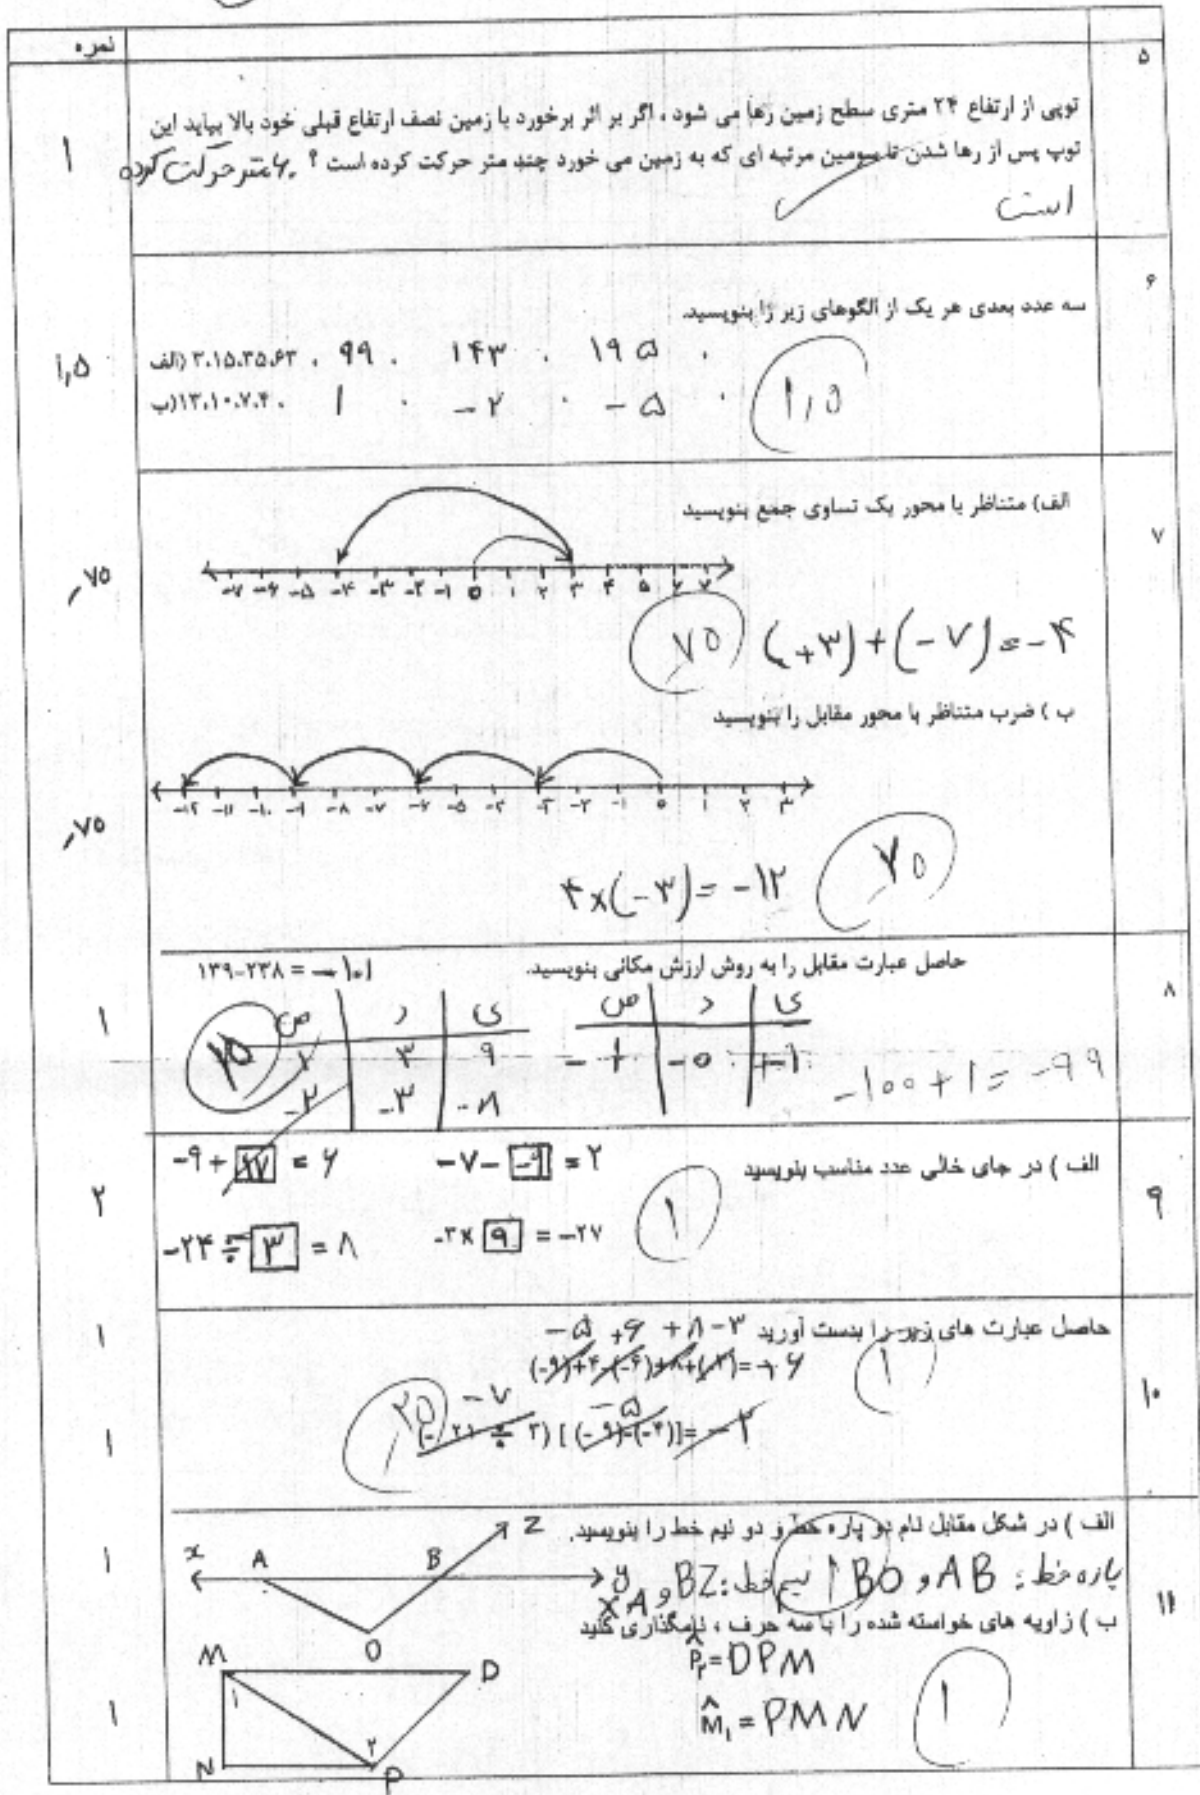 نمره
۵
توپی از ارتفاع ۲۴ متری سطح زمین رها می شود ، اگر بر اثر برخورد با زمین نصف ارتفاع قبلی خود بالا بیاید این
توپ پس از رها شدن تا سومین مرتبه ای که به زمین می خورد چند متر حرکت کرده است ؟ متر حرکت کرده
است
۱
۶
سه عدد بعدی هر یک از الگوهای زیر را بنویسید.
الف) ۳،۱۵،۳۵،۶۳ ، ۹۹ ، ۱۴۳ ، ۱۹۵ ،
ب) ۱۳،۱۰،۷،۴ ، ۱ ، -۲ ، -۵ ،
۱,۵
۱,۵
۷
الف) متناظر با محور یک تساوی جمع بنویسید
-۷ -۶ -۵ -۴ -۳ -۲ -۱ 0 ۱ ۲ ۳ ۴ ۵ ۶ ۷
,۷۵
(+۳)+(-۷)=-۴
,۷۵
ب ) ضرب متناظر با محور مقابل را بنویسید
-۱۲ -۱۱ -۱۰ -۹ -۸ -۷ -۶ -۵ -۴ -۳ -۲ -۱ ۰ ۱ ۲ ۳
,۷۵
۴×(-۳)= -۱۲
,۷۵
۸
حاصل عبارت مقابل را به روش ارزش مکانی بنویسید.
۱۳۹-۲۳۸ = -۱۰۱
۱
ص د ی
۱ ۳ ۹
-۲ -۳ -۸
ص د ی
-۱ -۰ +۱
-۱۰۰+۱= -۹۹
۹
الف ) در جای خالی عدد مناسب بنویسید
۲
-۹ + ۱۷ = ۶
-۷- -۹ = ۲
-۲۴ ÷ ۳ = ۸
-۳× ۹ = -۲۷
۱
۱۰
حاصل عبارت های زیر را بدست آورید
-۵ +۶ +۸-۳
(-۹)+۴-(-۶)+۸+(-۳)=+۶
۱
۱
-۷ -۵
(-۲۱ ÷ ۳) [ (-۹)-(-۴)]= -۲
,۲۵
۱
۱۱
الف ) در شکل مقابل نام دو پاره خط و دو نیم خط را بنویسید.
پاره خط: AB و BO نیم خط: BZ و XA
x A B Z y O
۱
۱
ب ) زاویه های خواسته شده را با سه حرف ، نامگذاری کنید
P̂۲=DPM
M̂۱ = PMN
M D ۱ ۲ N P
۱
۱